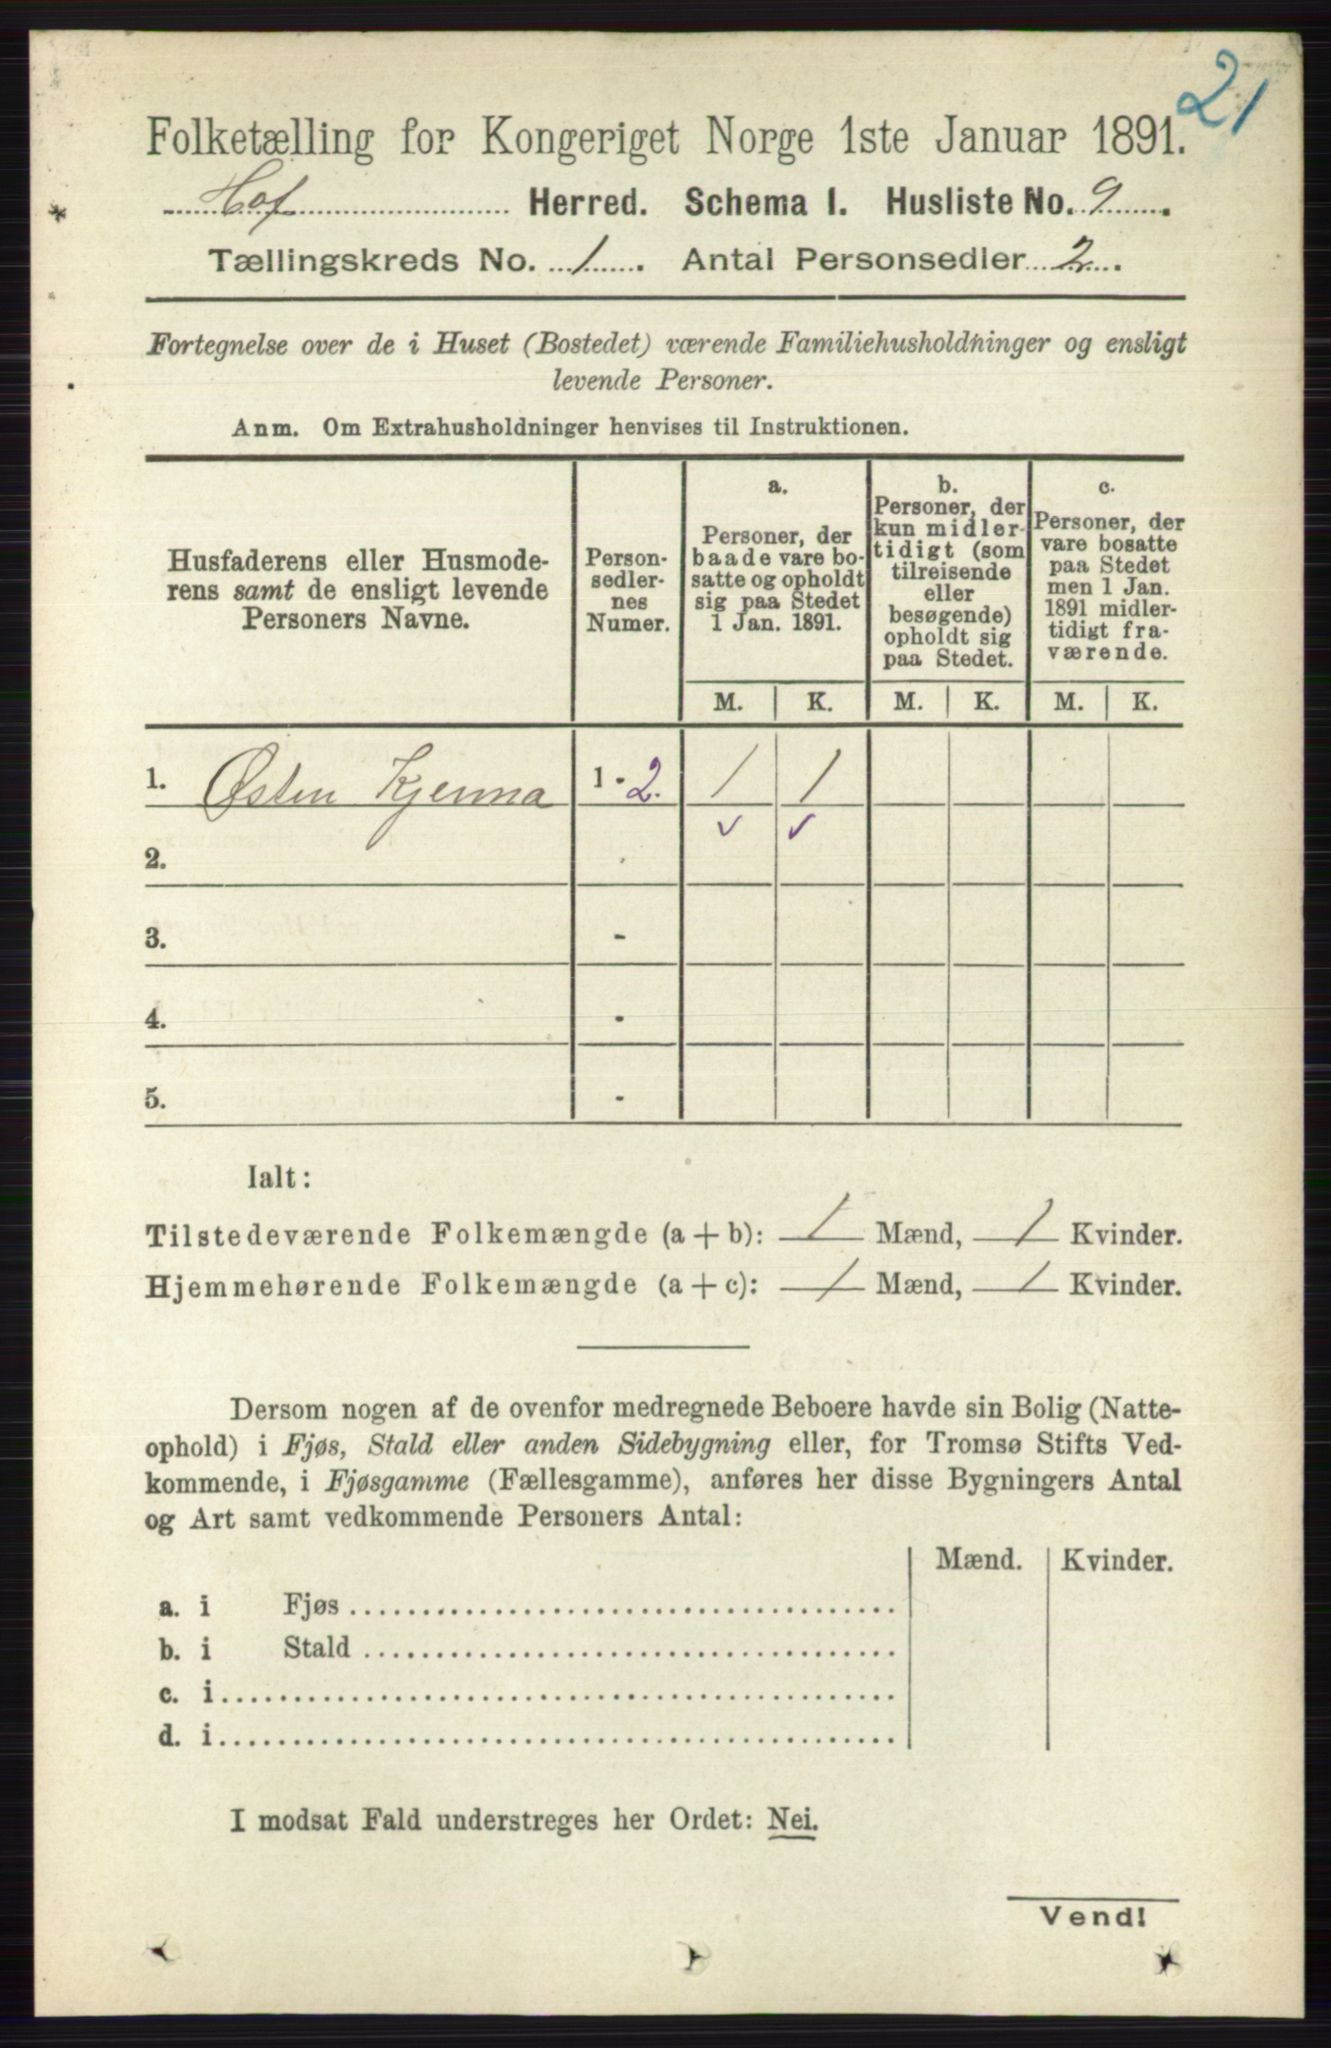 21
Folketælling for Kongeriget Norge 1ste Januar 1891.
Hof Herred. Schema 1. Husliste No. 9.
Tællingskreds No. 1. Antal Personsedler 2.
Fortegnelse over de i Huset (Bostedet) værende Familiehusholdninger og ensligt
levende Personer.
Anm. Om Extrahusholdninger henvises til Instruktionen.
Husfaderens eller Husmode-
rens samt de ensligt levende
Personers Navne.
Person-
sedler-
nes
Numer.
a.
Personer, der
baade vare bo-
satte og opholdt
sig paa Stedet
1 Jan. 1891.
b.
Personer, der
kun midler-
tidigt (som
tilreisende
eller
besøgende)
opholdt sig
paa Stedet.
c.
Personer, der
vare bosatte
paa Stedet
men 1 Jan.
1891 midler-
tidigt fra-
værende.
M. K. M. K. M. K.
1. Østen Kjenna 1 - 2. 1 1
2.
3. -
4. -
5. -
Ialt:
Tilstedeværende Folkemængde (a + b): 1 Mænd, 1 Kvinder.
Hjemmehørende Folkemængde (a + c): 1 Mænd, 1 Kvinder.
Dersom nogen af de ovenfor medregnede Beboere havde sin Bolig (Natte-
ophold) i Fjøs, Stald eller anden Sidebygning eller, for Tromsø Stifts Ved-
kommende, i Fjøsgamme (Fællesgamme), anføres her disse Bygningers Antal
og Art samt vedkommende Personers Antal:
Mænd. Kvinder.
a. i Fjøs
b. i Stald
c. i
d. i
I modsat Fald understreges her Ordet: Nei.
Vend!